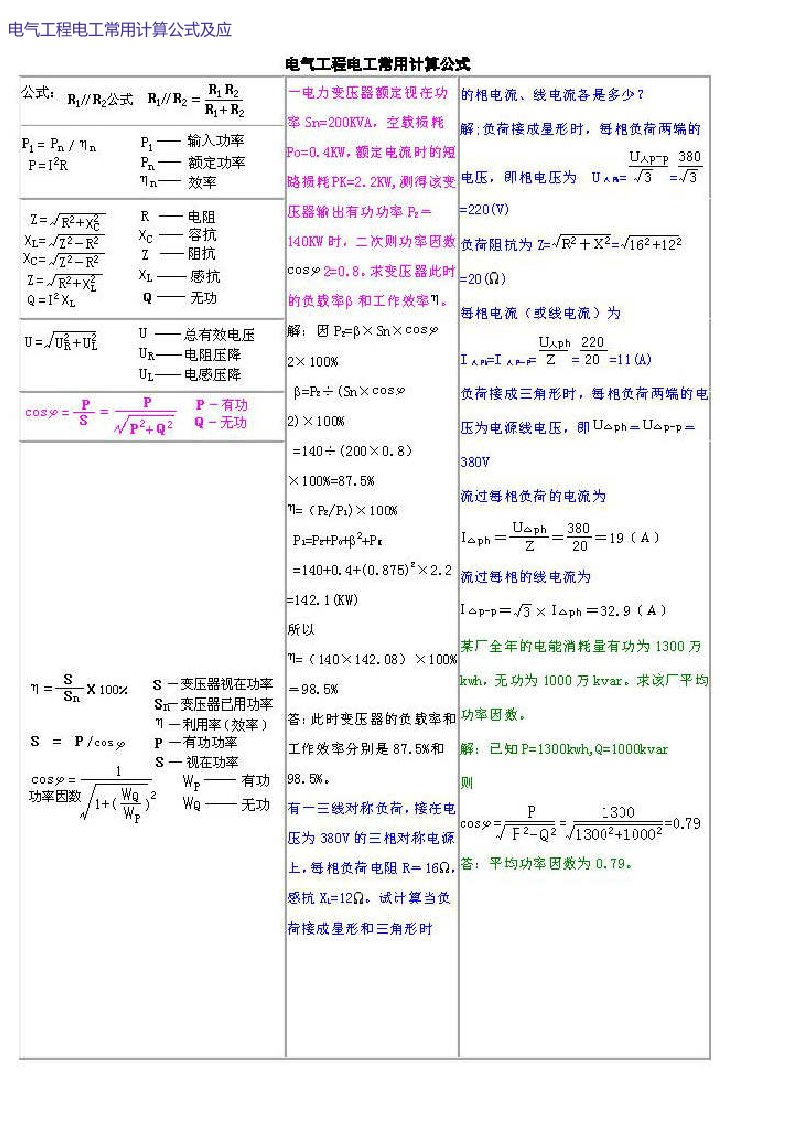 电气工程电工常用计算公式及应
电气工程电工常用计算公式
公式: R₁//R₂公式 R₁//R₂ = R₁R₂ / (R₁+R₂)
P₁ = Pn / ηn P₁ —— 输入功率
P=I²R Pn —— 额定功率
ηn —— 效率
Z=√(R²+X²C) R —— 电阻
XL=√(Z²−R²) XC —— 容抗
XC=√(Z²−R²) Z —— 阻抗
Z=√(R²+X²L) XL —— 感抗
Q=I²XL Q —— 无功
U=√(U²R+U²L) U —— 总有效电压
UR——电阻压降
UL——电感压降
cosφ = P/S = P/√(P²+Q²) P - 有功
Q - 无功
η = S/Sn X 100% S —变压器视在功率
Sn—变压器已用功率
η —利用率(效率)
S = P/cosφ P —有功功率
S — 视在功率
cosφ = 1/√(1+(WQ/Wp)²) Wp —— 有功
功率因数 WQ —— 无功
一电力变压器额定视在功
率 Sn=200KVA，空载损耗
Po=0.4KW，额定电流时的短
路损耗PK=2.2KW,测得该变
压器输出有功功率 P₂＝
140KW 时，二次则功率因数
cosφ2=0.8。求变压器此时
的负载率β 和工作效率η。
解：因 P₂=β×Sn×cosφ
2×100%
β=P₂÷(Sn×cosφ
2)×100%
=140÷(200×0.8)
×100%=87.5%
η=（P₂/P₁)×100%
P₁=P₂+P₀+β²+Pк
=140+0.4+(0.875)²×2.2
=142.1(KW)
所以
η=（140×142.08）×100%
＝98.5%
答：此时变压器的负载率和
工作效率分别是 87.5%和
98.5%。
有一三线对称负荷，接在电
压为 380V 的三相对称电源
上，每相负荷电阻 R＝16Ω，
感抗 XL=12Ω。试计算当负
荷接成星形和三角形时
的相电流、线电流各是多少?
解;负荷接成星形时，每相负荷两端的
电压，即相电压为 U人Ph= U人P-P/√3 = 380/√3
=220(V)
负荷阻抗为 Z=√(R²＋X²)=√(16²+12²)
=20(Ω)
每相电流（或线电流）为
I人Ph=I人P-P= U人ph/Z = 220/20 =11(A)
负荷接成三角形时，每相负荷两端的电
压为电源线电压，即 U△ph＝U△p-p＝
380V
流过每相负荷的电流为
I△ph＝U△ph/Z＝380/20＝19（A）
流过每相的线电流为
I△p-p＝√3×I△ph＝32.9（A）
某厂全年的电能消耗量有功为 1300 万
kwh，无功为 1000 万 kvar。求该厂平均
功率因数。
解：已知 P=1300kwh,Q=1000kvar
则
cosφ=P/√(P²−Q²)=1300/√(1300²+1000²)=0.79
答：平均功率因数为 0.79。